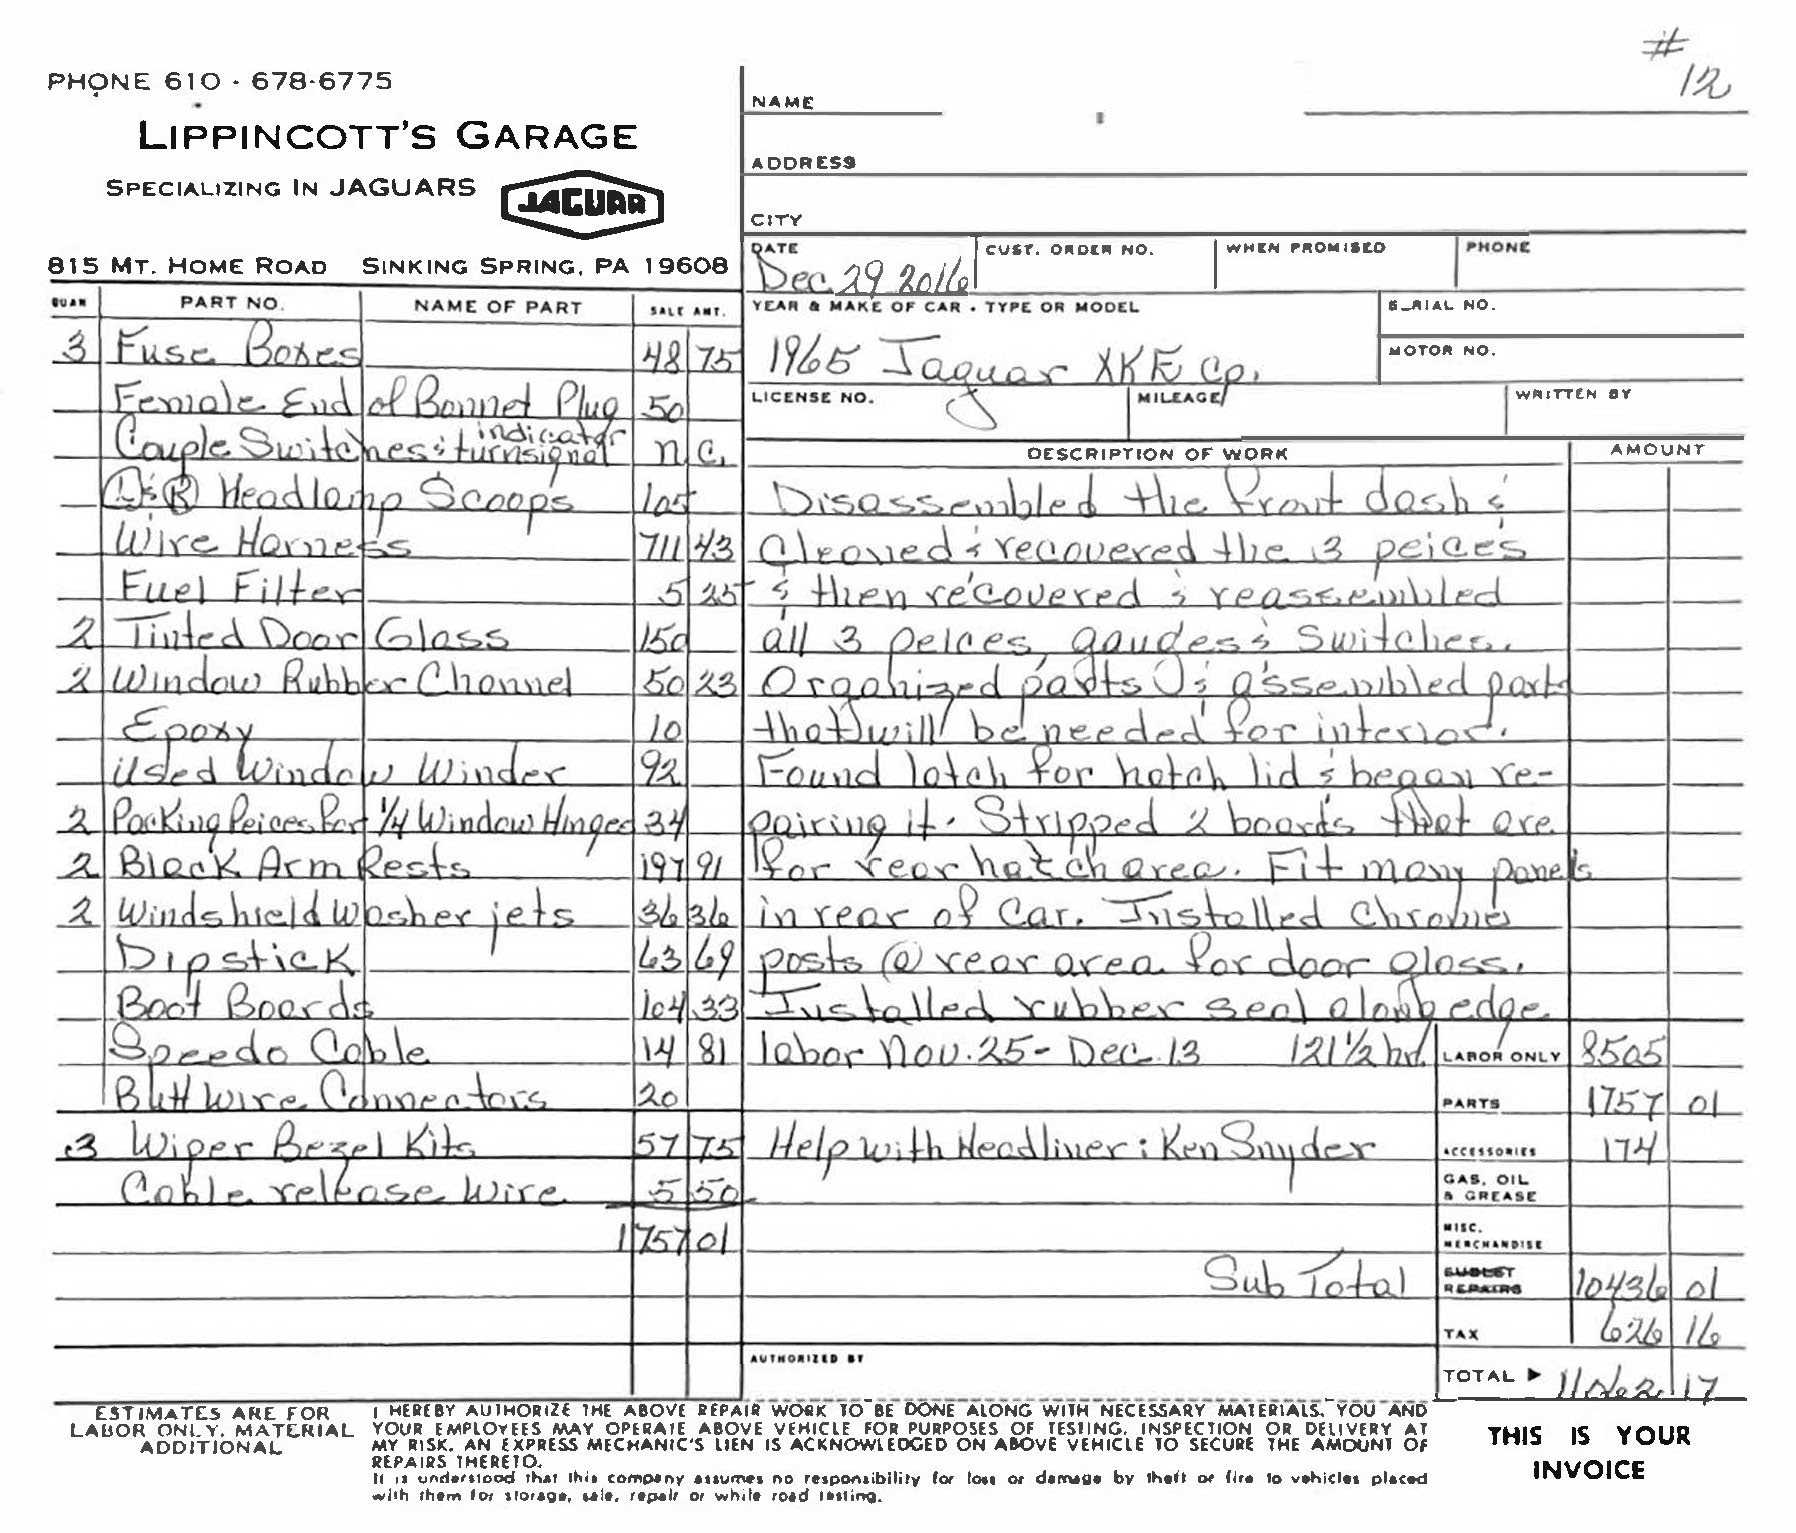 #
12
PHONE 610 - 678-6775
LIPPINCOTT'S GARAGE
SPECIALIZING IN JAGUARS
JAGUAR
815 MT. HOME ROAD SINKING SPRING, PA 19608
NAME
ADDRESS
CITY
DATE CUST. ORDER NO. WHEN PROMISED PHONE
Dec 29 2016
YEAR & MAKE OF CAR - TYPE OR MODEL
SERIAL NO.
1965 Jaguar XKE Cp.
MOTOR NO.
LICENSE NO. MILEAGE WRITTEN BY
QUAN PART NO. NAME OF PART SALE AMT.
3 Fuse Boxes 48 75
Female End of Bonnet Plug 50
Couple Switches & indicator turnsignal n.c.
L & R Headlamp Scoops 105
Wire Harness 711 43
Fuel Filter 5 25
2 Tinted Door Glass 150
2 Window Rubber Channel 50 23
Epoxy 10
Used Window Winder 92
2 Packing Peices for 1/4 Window Hinges 34
2 Black Arm Rests 197 91
2 Windshield Washer jets 36 36
Dipstick 63 69
Boot Boards 104 33
Speedo Cable 14 81
Butt Wire Connectors 20
3 Wiper Bezel Kits 57 75
Cable release Wire 5 50
1757 01
DESCRIPTION OF WORK AMOUNT
Disassembled the front dash &
Cleaned & recovered the 3 peices
& then recovered & reassembled
all 3 peices, gaudges & Switches.
Organized parts & assembled parts
that will be needed for interior.
Found latch for hatch lid & began re-
pairing it. Stripped 2 boards that are
for rear hatch area. Fit many panels
in rear of Car. Installed Chrome
posts @ rear area for door glass.
Installed rubber seal along edge
labor Nov. 25 - Dec. 13 121 1/2 hr. LABOR ONLY 8505
PARTS 1757 01
Help with Headliner: Ken Snyder ACCESSORIES 174
GAS, OIL & GREASE
MISC. MERCHANDISE
Sub Total SUBLET REPAIRS 10436 01
TAX 626 16
AUTHORIZED BY
TOTAL ▶ 11062 17
ESTIMATES ARE FOR
LABOR ONLY. MATERIAL
ADDITIONAL
I HEREBY AUTHORIZE THE ABOVE REPAIR WORK TO BE DONE ALONG WITH NECESSARY MATERIALS. YOU AND
YOUR EMPLOYEES MAY OPERATE ABOVE VEHICLE FOR PURPOSES OF TESTING, INSPECTION OR DELIVERY AT
MY RISK. AN EXPRESS MECHANIC'S LIEN IS ACKNOWLEDGED ON ABOVE VEHICLE TO SECURE THE AMOUNT OF
REPAIRS THERETO.
It is understood that this company assumes no responsibility for loss or damage by theft or fire to vehicles placed
with them for storage, sale, repair or while road testing.
THIS IS YOUR
INVOICE